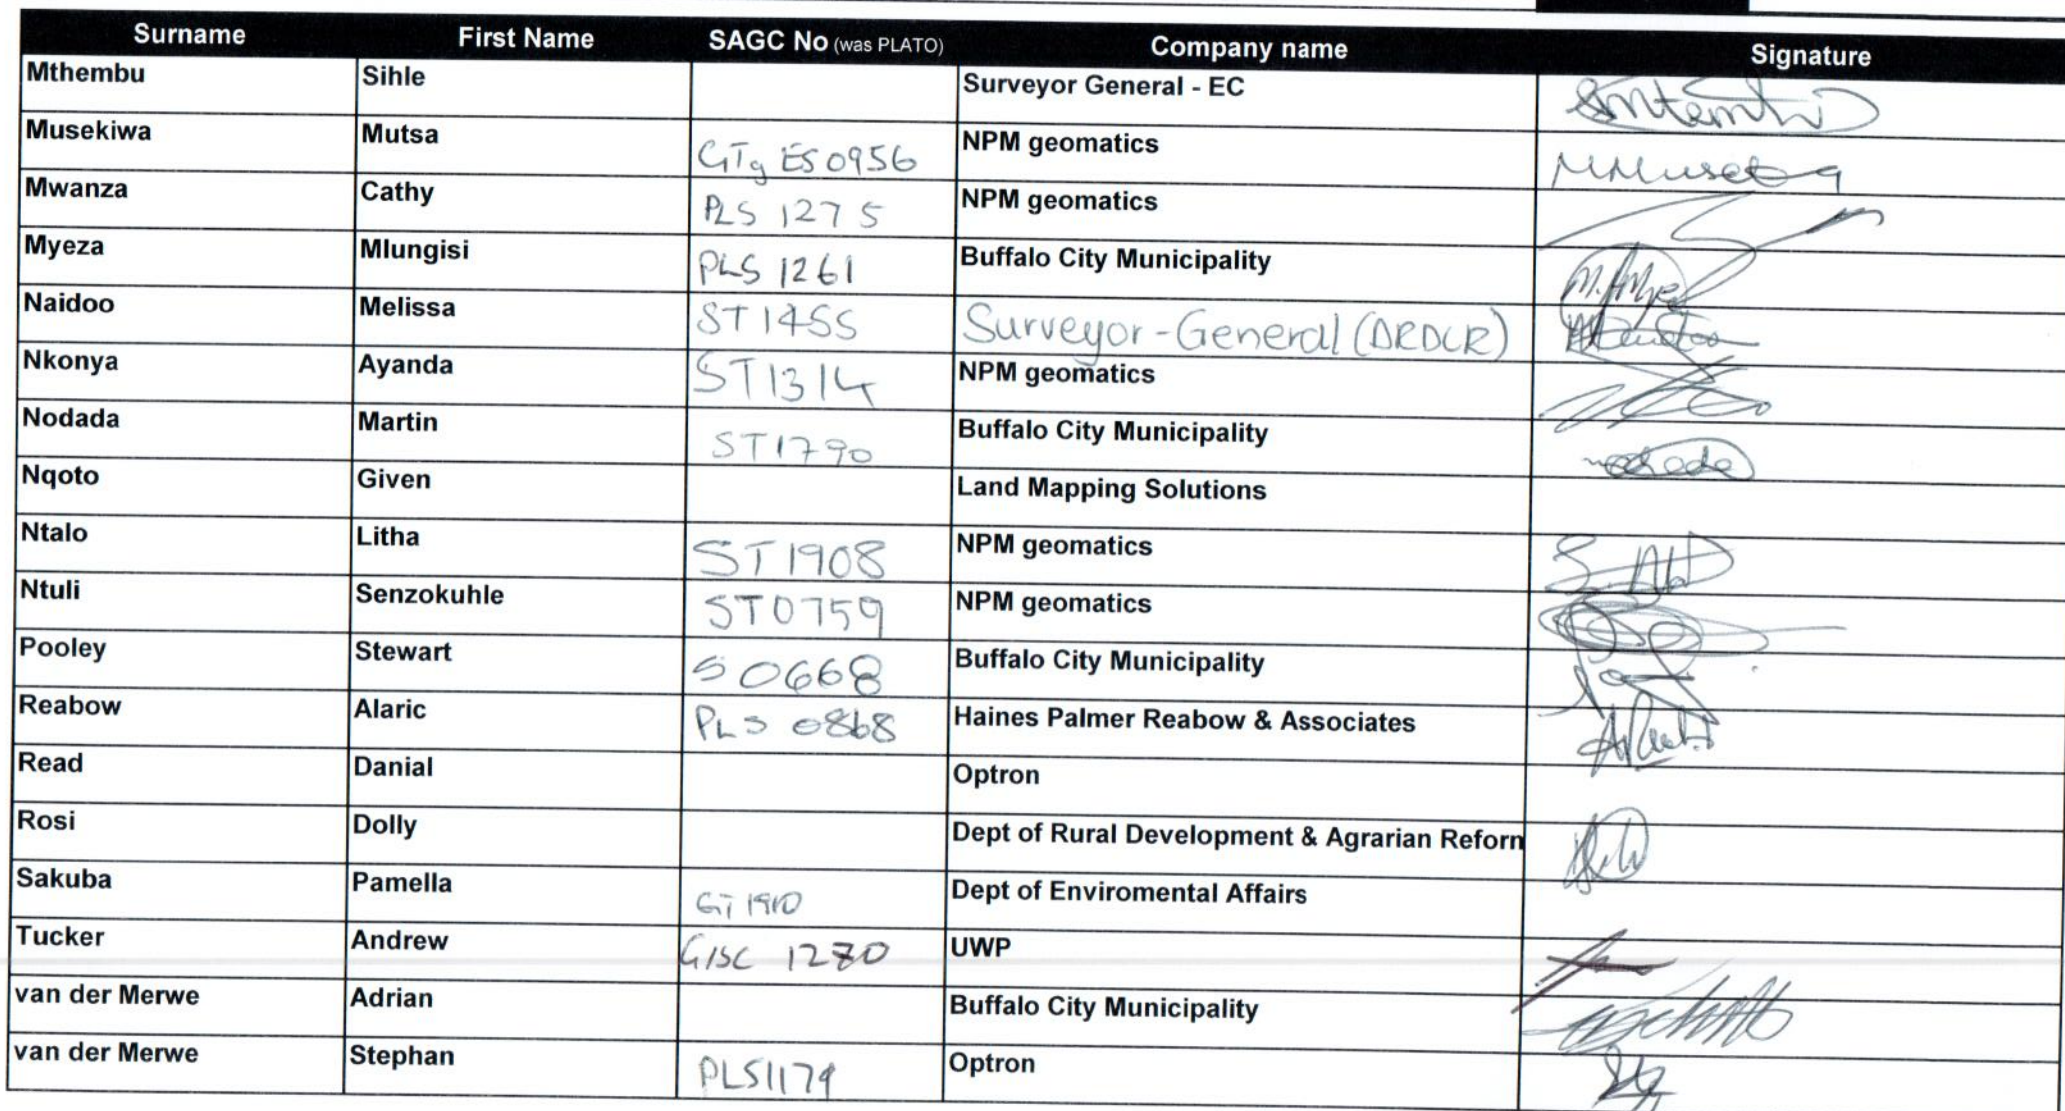 Surname First Name SAGC No (was PLATO) Company name Signature
Mthembu Sihle Surveyor General - EC
Musekiwa Mutsa GTg ES0956 NPM geomatics
Mwanza Cathy PLS 1275 NPM geomatics
Myeza Mlungisi PLS 1261 Buffalo City Municipality
Naidoo Melissa ST1455 Surveyor-General (DRDLR)
Nkonya Ayanda ST1314 NPM geomatics
Nodada Martin ST1790 Buffalo City Municipality
Nqoto Given Land Mapping Solutions
Ntalo Litha ST1908 NPM geomatics
Ntuli Senzokuhle ST0759 NPM geomatics
Pooley Stewart S0668 Buffalo City Municipality
Reabow Alaric PLS 0868 Haines Palmer Reabow & Associates
Read Danial Optron
Rosi Dolly Dept of Rural Development & Agrarian Reforn
Sakuba Pamella GT 1910 Dept of Enviromental Affairs
Tucker Andrew GISC 1280 UWP
van der Merwe Adrian Buffalo City Municipality
van der Merwe Stephan PLS1179 Optron